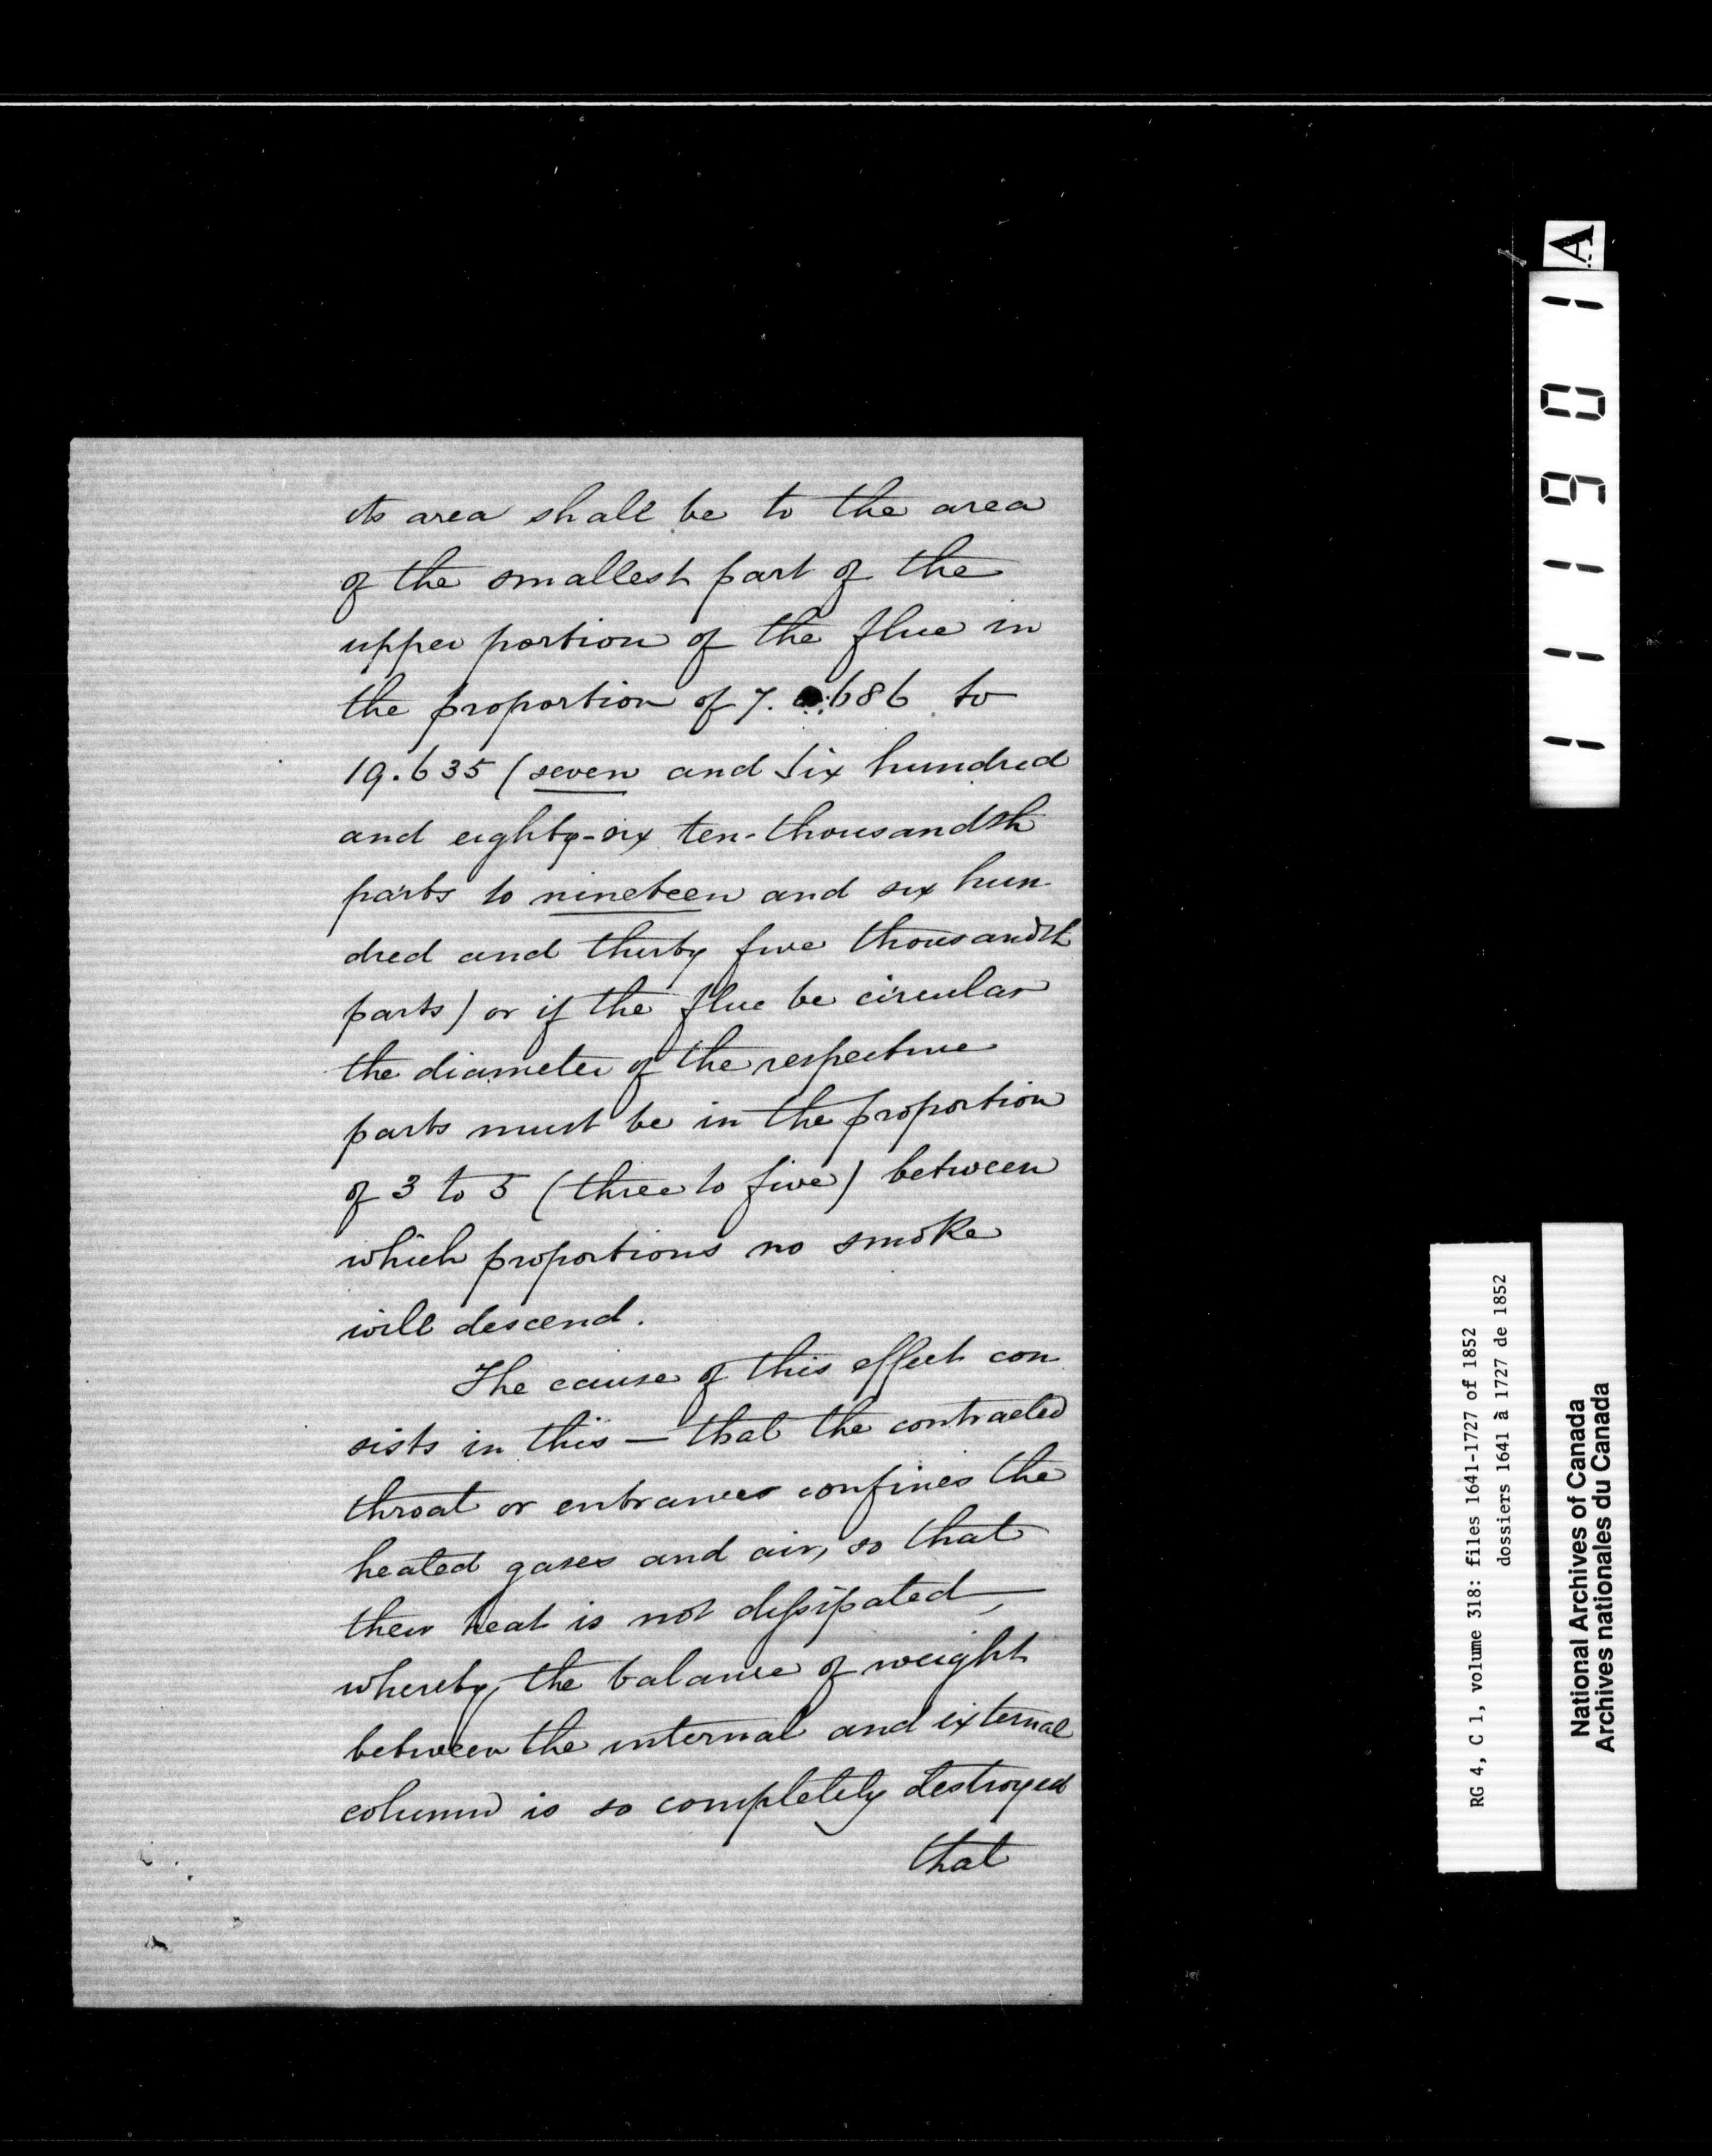 its area shall be to the area
of the smallest part of the
upper portion of the flue in
the proportion of 7. 0686 to
19.635 (seven and six hundred
and eighty-six ten-thousandth
parts to nineteen and six hun
dred and thirty five thousandth
parts) or if the flue be circular
the diameter of the respective
parts must be in the proportion
of 3 to 5 (three to five) between
which proportions no smoke
will descend.
The cause of this effect con
sists in this — that the contracted
throat or entrances confines the
heated gases and air, so that
their heat is not dissipated,
whereby, the balance of weight
between the internal and external
column is so completely destroyed
that
A
111901
RG 4, C 1, volume 318: files 1641-1727 of 1852
dossiers 1641 à 1727 de 1852
National Archives of Canada
Archives nationales du Canada